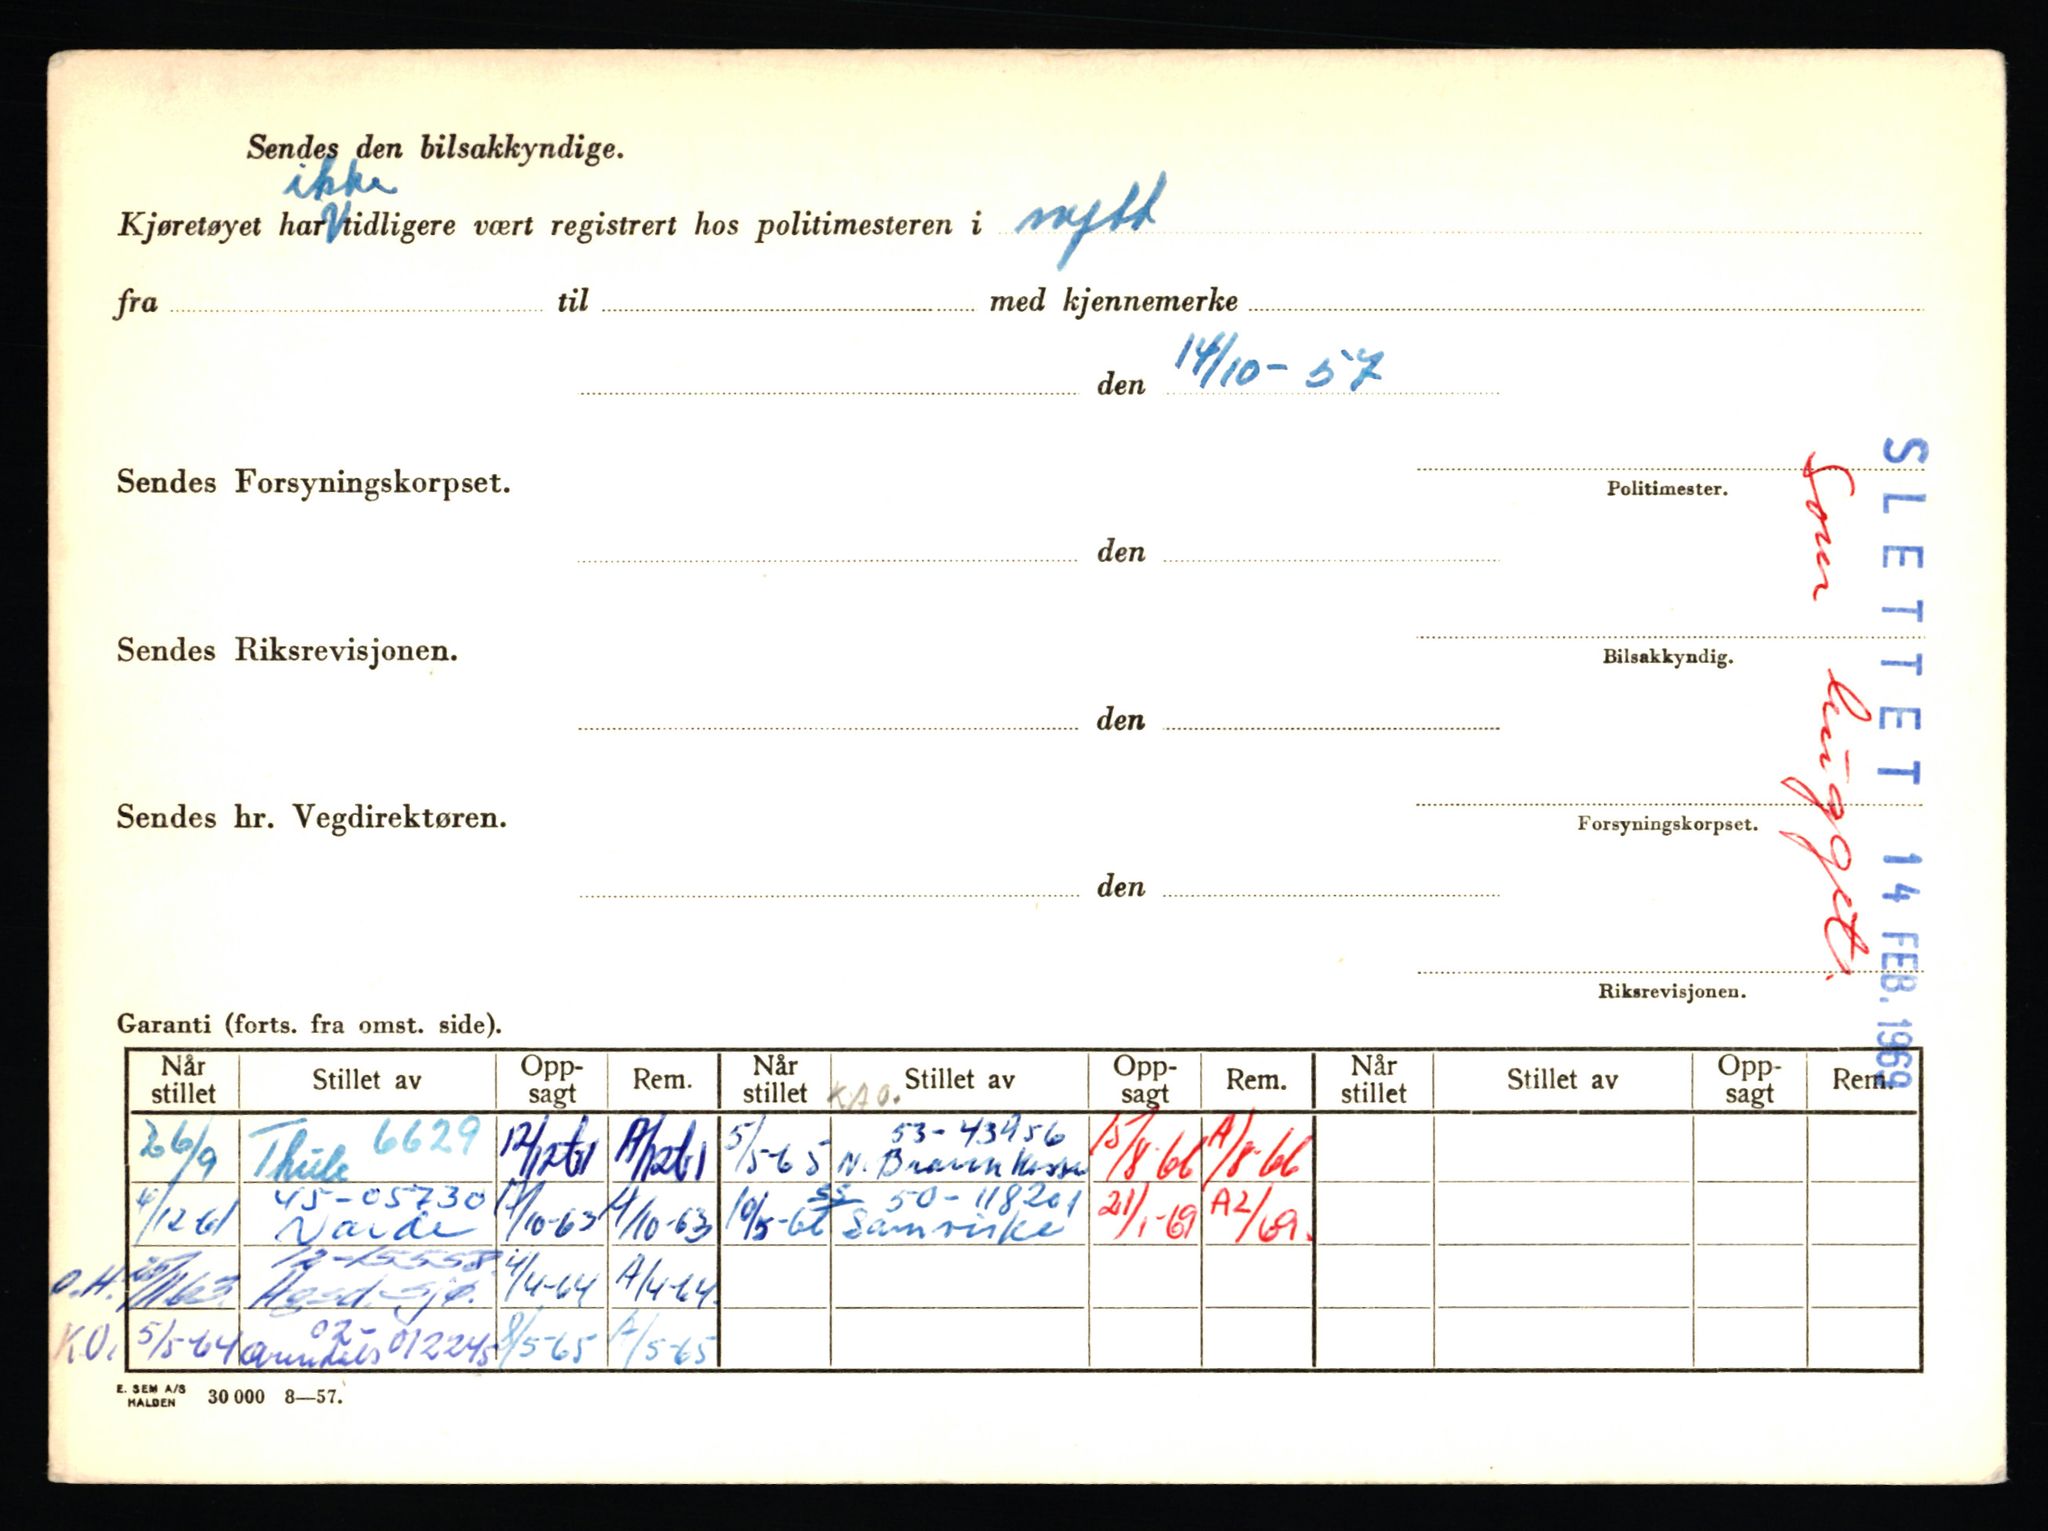 Sendes den bilsakkyndige.
ikke
Kjøretøyet har V tidligere vært registrert hos politimesteren i nytt
fra til med kjennemerke
den 14/10-57
Sendes Forsyningskorpset.
Politimester.
den
Sendes Riksrevisjonen.
Bilsakkyndig.
den
Sendes hr. Vegdirektøren.
Forsyningskorpset.
den
Riksrevisjonen.
SLETTET 14 FEB. 1969
Som hugget.
Garanti (forts. fra omst. side).
Når stillet Stillet av Opp-sagt Rem. Når stillet Stillet av Opp-sagt Rem. Når stillet Stillet av Opp-sagt Rem.
K.A.O.
26/9 Thule 6629 12/12 61 A/12 61 5/5-65 53-43956 N. Brann 15/8-66 A/8-66
4/12-61 45-05730 /10-63 /10-63 10/5-66 55 50-118201 Samvirke 21/1-69 A2/69.
O.H. 4/4-64 A/4-64.
K.O. 5/5-64 02-012245 8/5-65 A/5-65
E. SEM A/S
HALDEN 30 000 8—57.